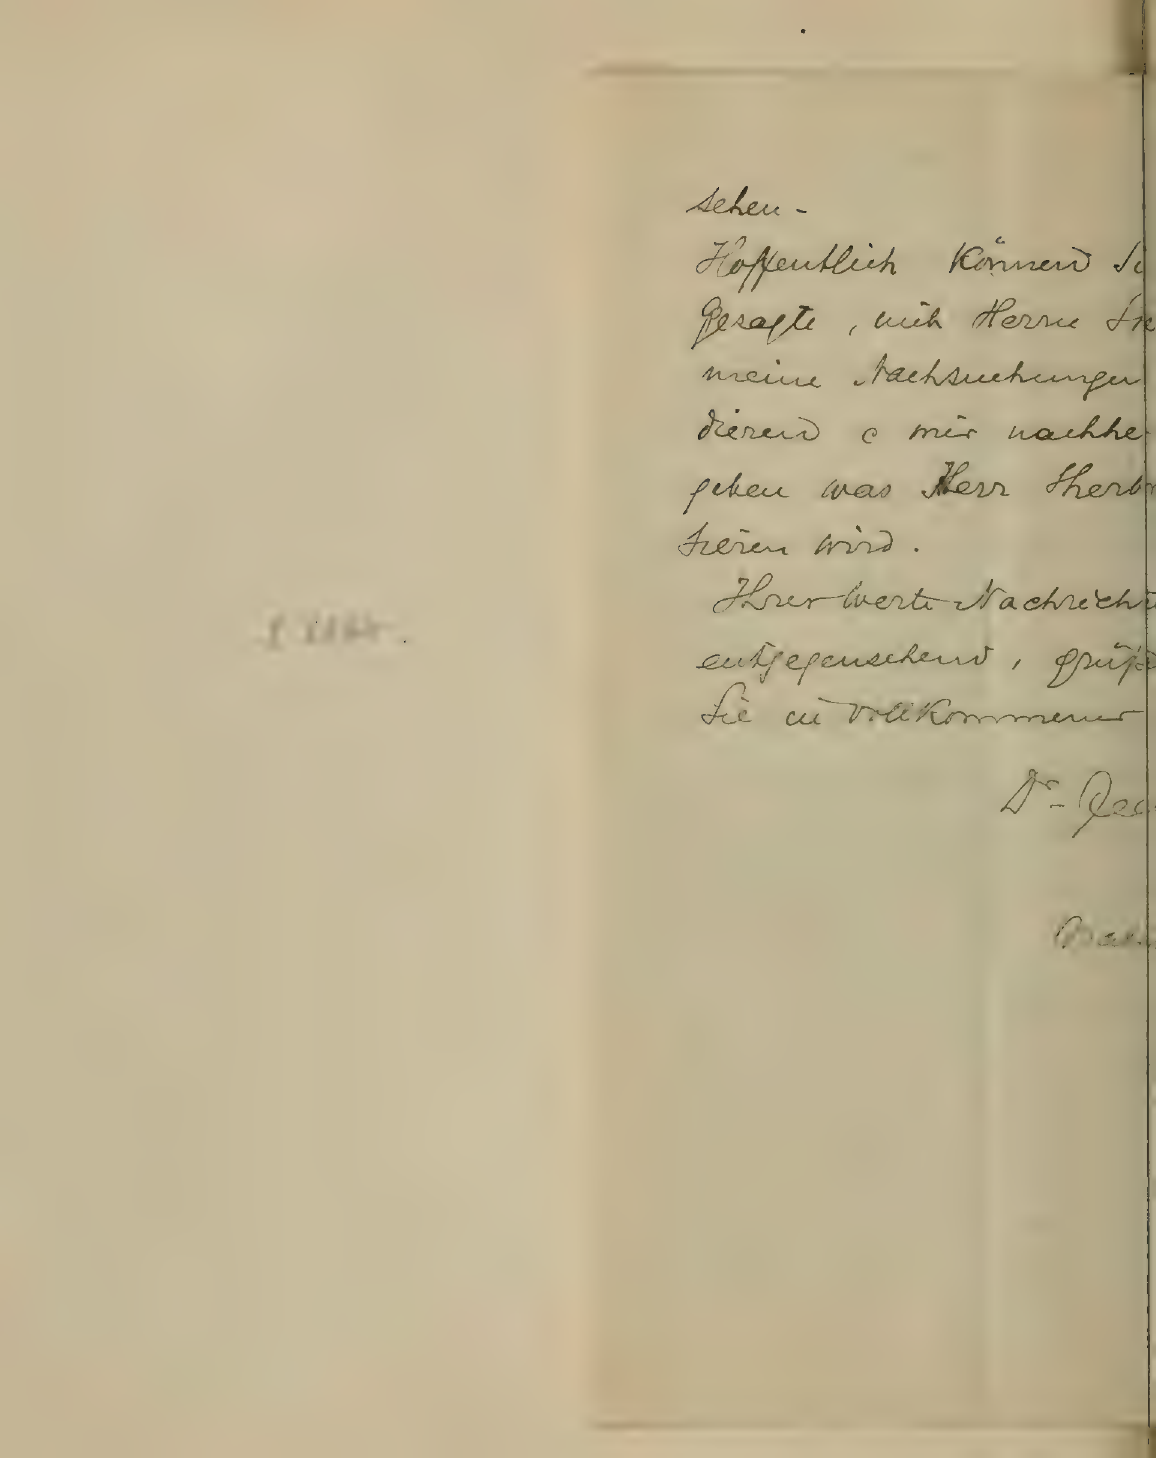 sehen -
Hoffentlich können
Gesagte, mit Herrn
meine Nachsuchungen
dieren & mir nachhe
geben was Herr
tieren wird.
Ihrer werte Nachricht
entgegensehend, grüße
Sie in vollkommener
Dr.